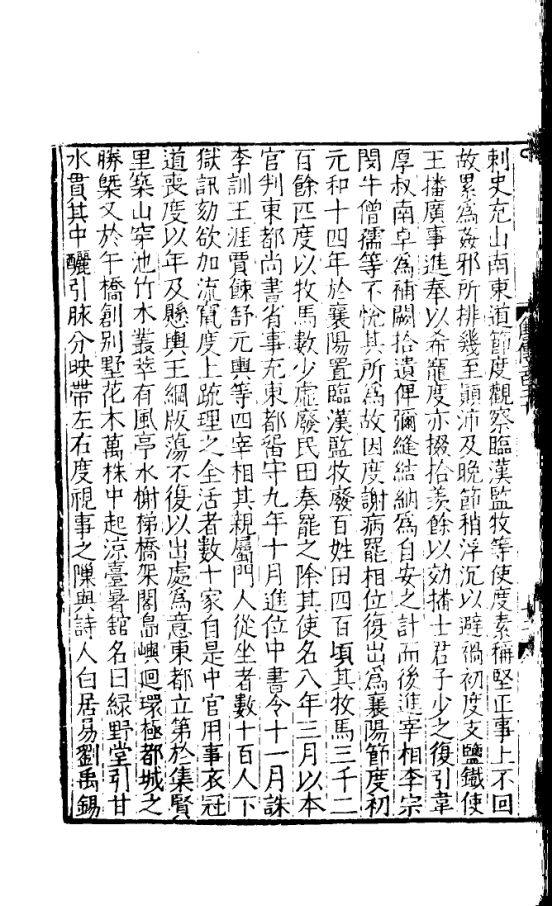 刺史充山南東道節度觀察臨漢監牧等使度素稱堅正事上不回
故累爲姦邪所排幾至顚沛及晚節稍浮沉以避禍初度支鹽鐵使
王播廣事進奉以希寵度亦掇拾羨餘以効播士君子少之復引韋
厚叔南卓爲補闕拾遺俾彌縫結納爲自安之計而後進宰相李宗
閔牛僧孺等不悅其所爲故因度謝病罷相位復出爲襄陽節度初
元和十四年於襄陽置臨漢監牧廢百姓田四百頃其牧馬三千二
百餘匹度以牧馬數少虛廢民田奏罷之除其使名八年三月以本
官判東都尚書省事充東都留守九年十月進位中書令十一月誅
李訓王涯賈餗舒元輿等四宰相其親屬門人從坐者數十百人下
獄訊劾欲加流竄度上疏理之全活者數十家自是中官用事衣冠
道喪度以年及懸輿王綱版蕩不復以出處爲意東都立第於集賢
里築山穿池竹木叢萃有風亭水榭梯橋架閣島嶼迴環極都城之
勝槩又於午橋創別墅花木萬株中起凉臺暑舘名曰綠野堂引甘
水貫其中釃引脉分映帶左右度視事之隟與詩人白居易劉禹錫